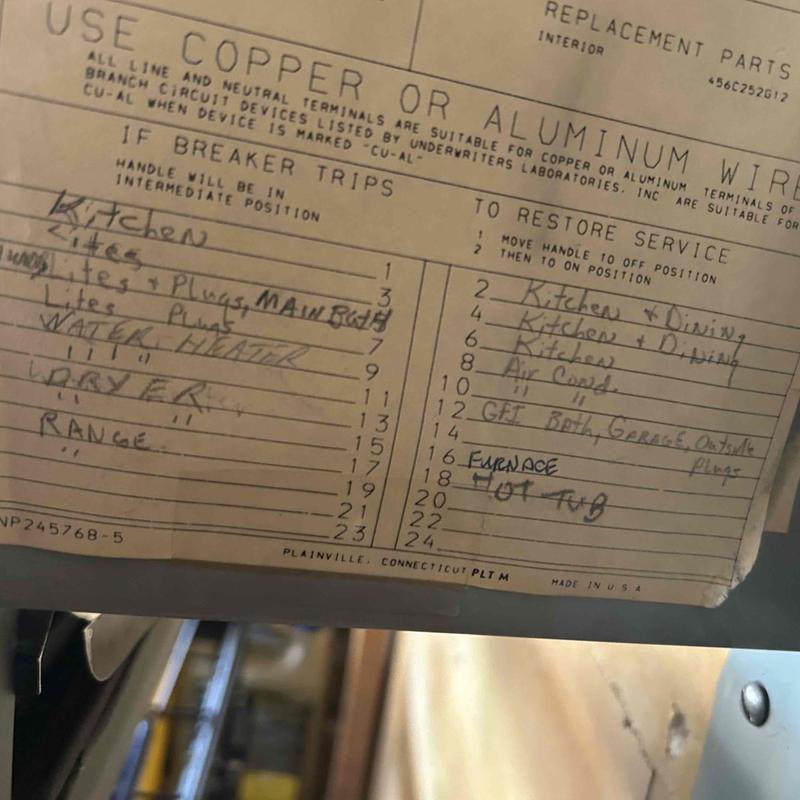 REPLACEMENT PARTS
INTERIOR 456C252G12
USE COPPER OR ALUMINUM WIRE
ALL LINE AND NEUTRAL TERMINALS ARE SUITABLE FOR COPPER OR ALUMINUM TERMINALS OF
BRANCH CIRCUIT DEVICES LISTED BY UNDERWRITERS LABORATORIES, INC ARE SUITABLE FOR
CU-AL WHEN DEVICE IS MARKED "CU-AL"
IF BREAKER TRIPS
HANDLE WILL BE IN
INTERMEDIATE POSITION
TO RESTORE SERVICE
1 MOVE HANDLE TO OFF POSITION
2 THEN TO ON POSITION
Kitchen 1
Lites 3
Lites + Plugs, MAIN
Lites Plugs 7
WATER HEATER 9
" " 11
DRYER 13
" " 15
RANGE 17
" 19
21
23
2 Kitchen + Dining
4 Kitchen + Dining
6 Kitchen
8 Air Cond.
10 " "
12 GFI Bath, GARAGE, Outside
14 Plugs
16 FURNACE
18 HOT TUB
20
22
24
NP245768-5
PLAINVILLE, CONNECTICUT PLT M MADE IN U S A